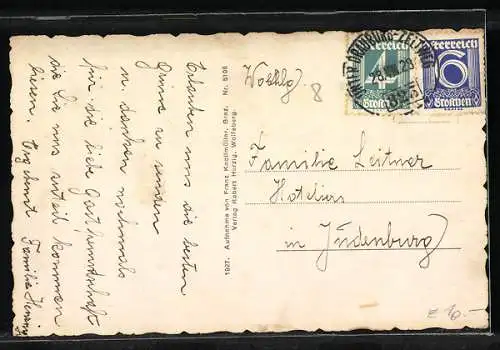 Wolfsbg
8
Erlauben uns die besten
Grüsse zu senden
u. danken nochmals
für die liebe Gastfreundschaft
die Sie uns zuteil kommen
liesen. Ergebenst Familie
1927. Aufnahme von Franz Knollmüller, Graz. Nr. 5108
Verlag Robert Herzig, Wolfsberg.
Österreich
4
Groschen
Österreich
6
Groschen
UNTER DRAUBURG-ZELTWEG
Familie Leitner
Hotelier
in Judenburg
€ 10.-